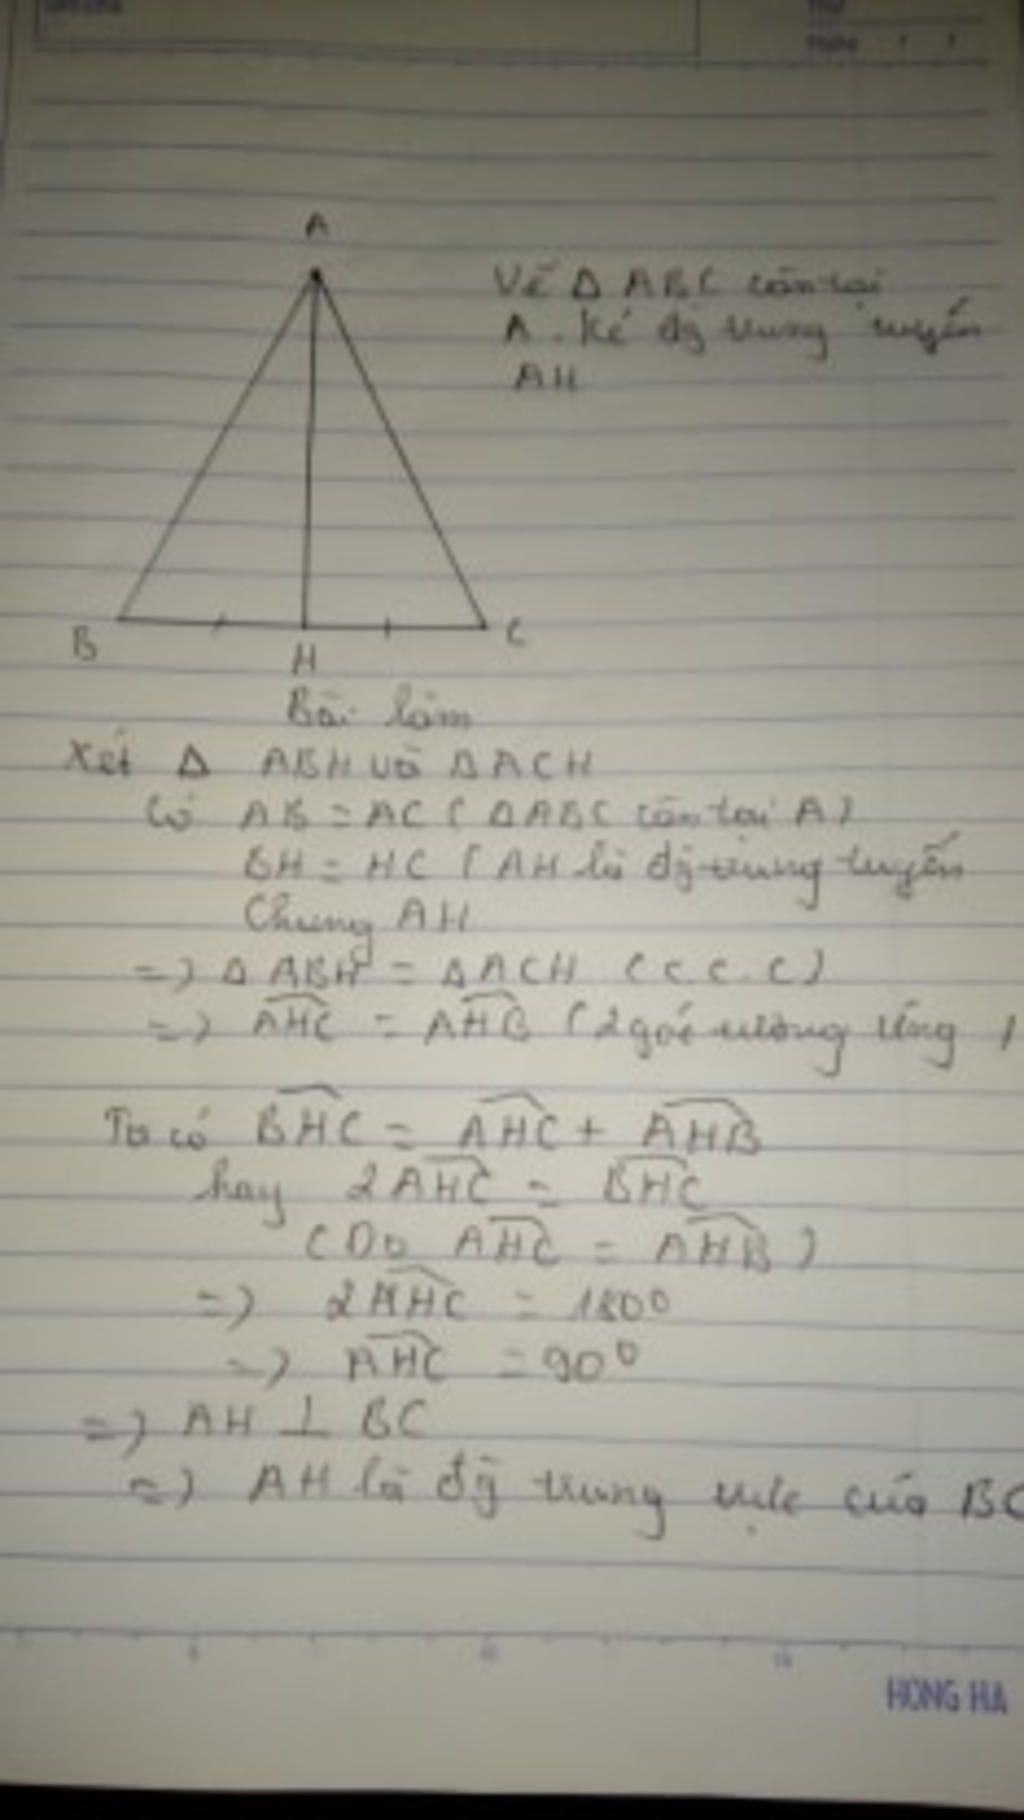 A
Vẽ Δ ABC cân tại
A. Kẻ đg trung tuyến
AH
B
H
C
Bài làm
Xét Δ ABH và Δ ACH
Có AB = AC ( Δ ABC cân tại A)
BH = HC ( AH là đg trung tuyến
Chung AH
=) Δ ABH = Δ ACH (c.c.c)
=) AHC = AHB (2 góc tương ứng )
Ta có BHC = AHC + AHB
hay 2AHC = BHC
(Do AHC = AHB )
=) 2AHC = 180⁰
=) AHC = 90⁰
=) AH ⊥ BC
=) AH là đg trung trực của BC
HONG HA